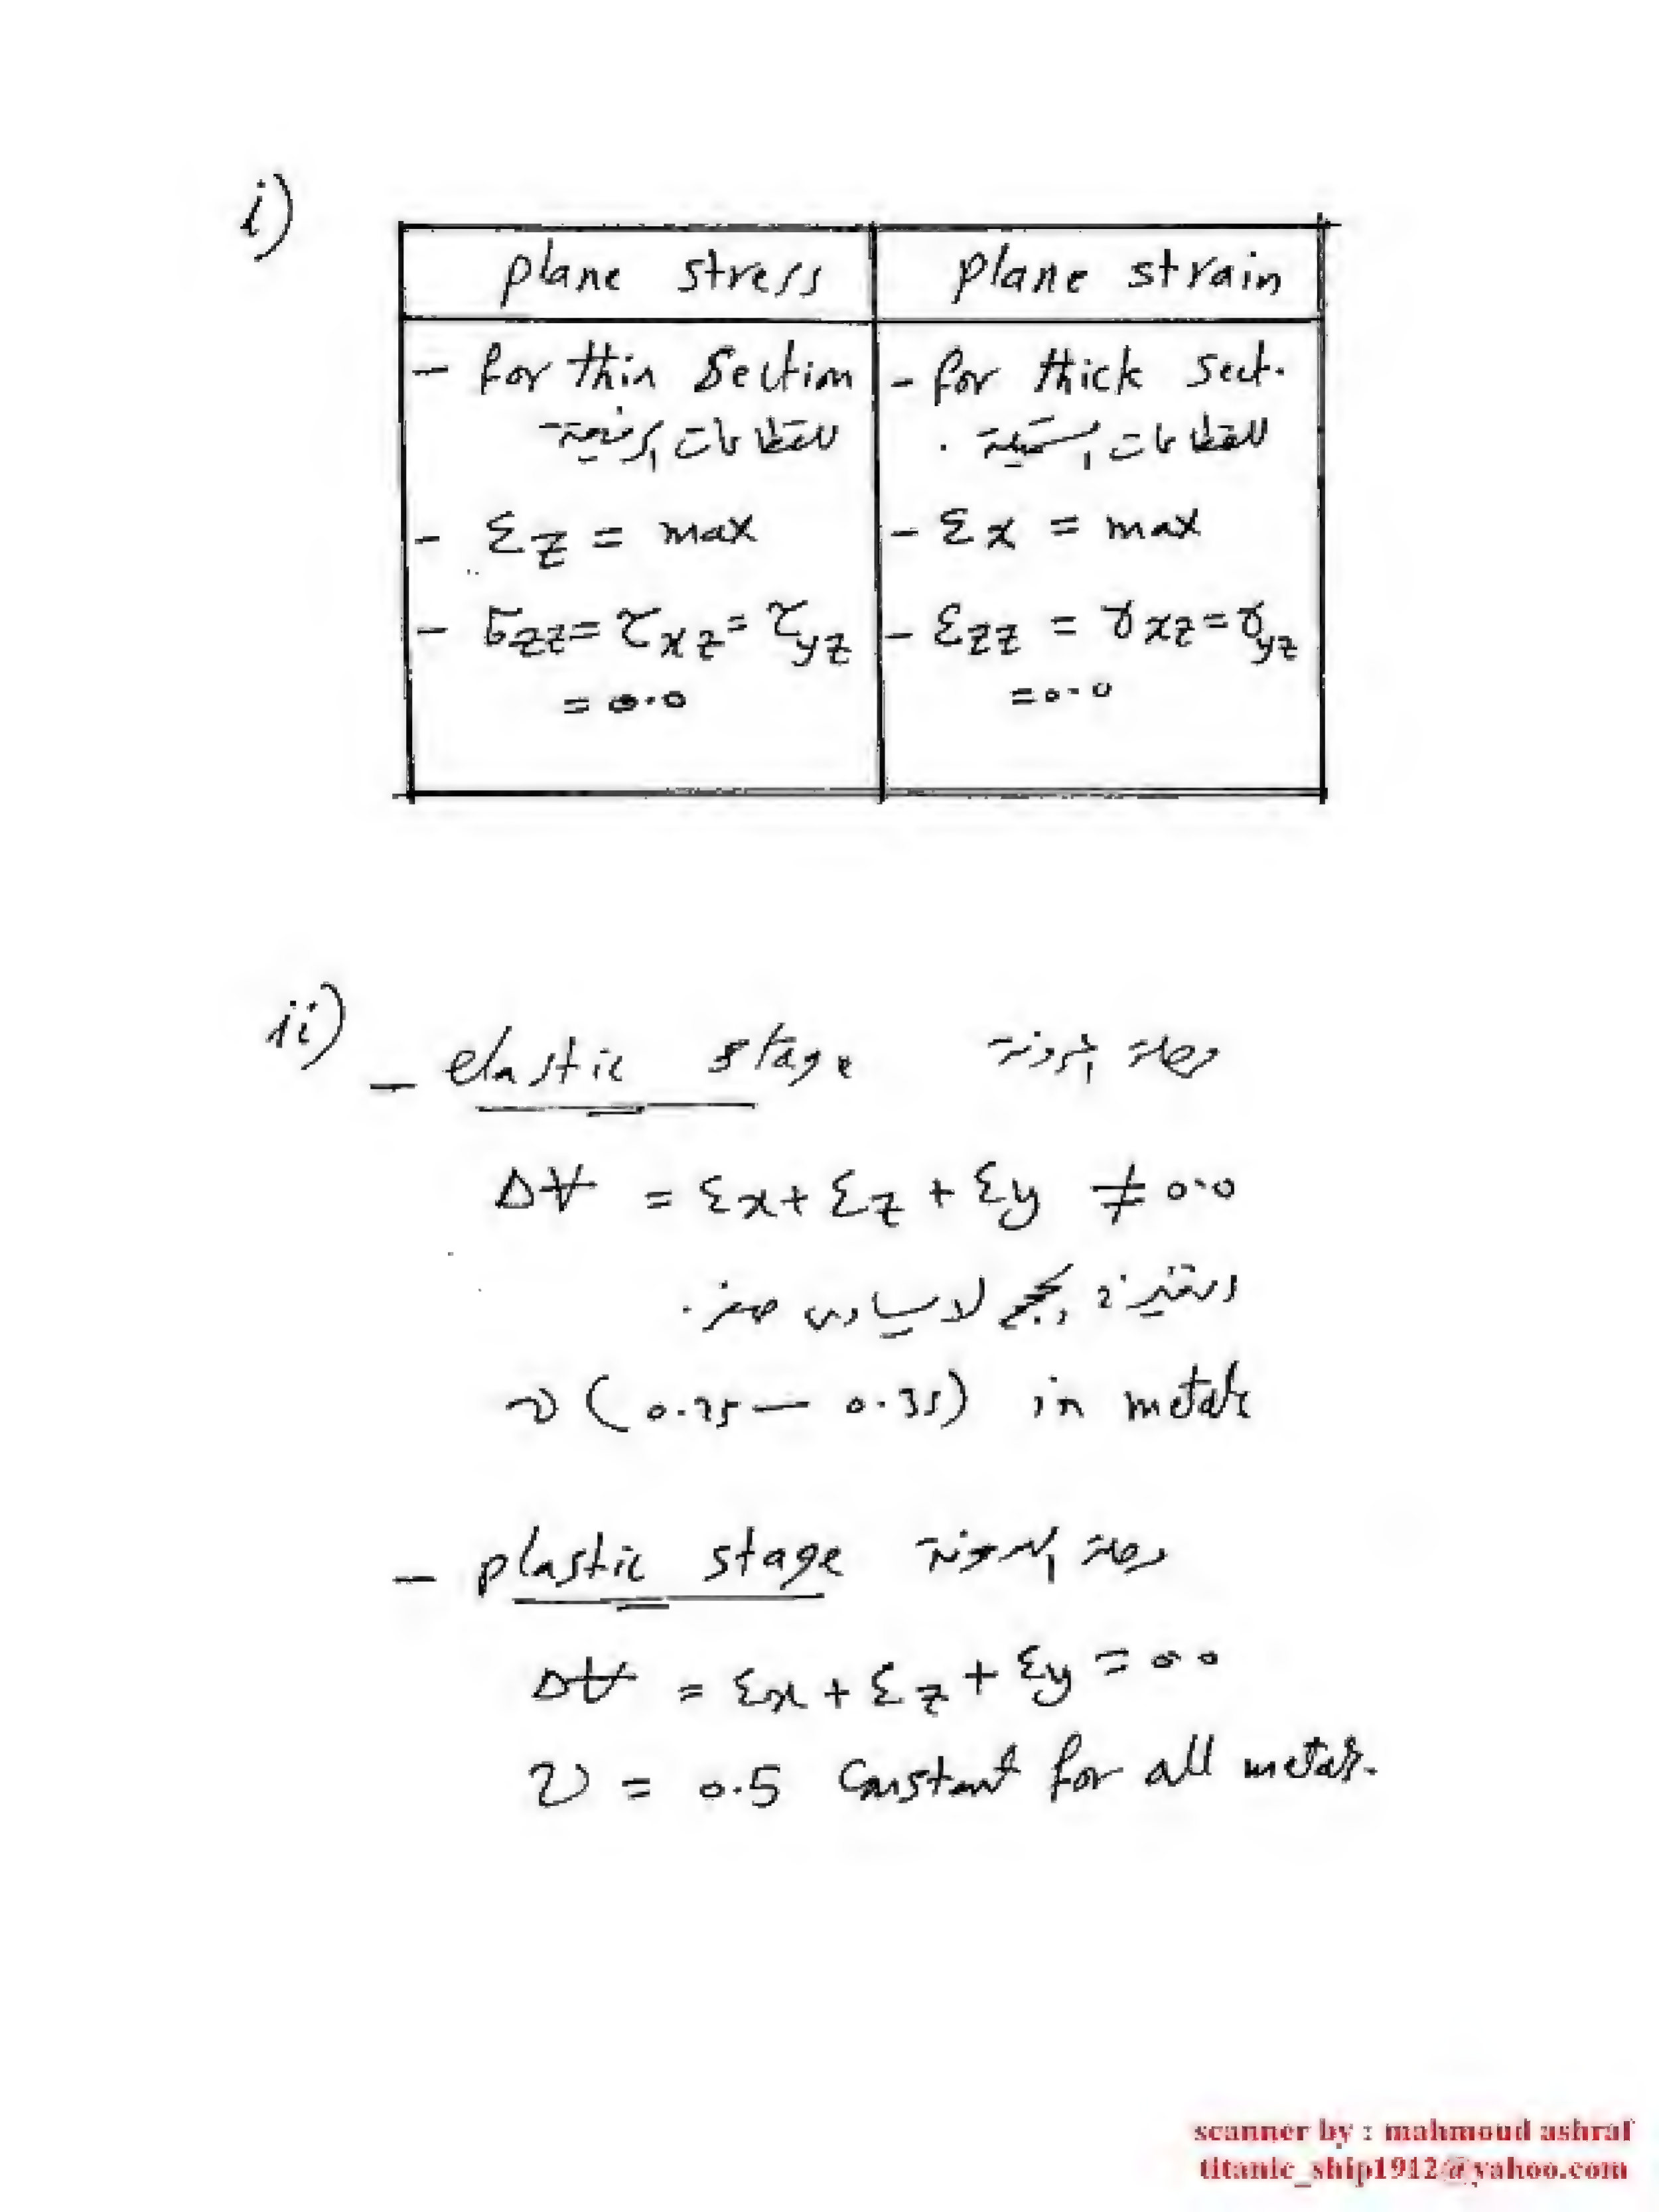 i)
plane stress
plane strain
- for thin Section
للقطاعات الرفيعة
- for thick sect.
للقطاعات السميكة .
- εz = max
- εx = max
- σzz = τxz = τyz
= 0.0
- εzz = γxz = γyz
= 0.0
ii)
- elastic stage مرحلة المرونة
ΔV = εx + εz + εy ≠ 0.0
التغير فى الحجم لا يساوى صفر .
ν (0.25 — 0.35) in metals
- plastic stage مرحلة اللدونة
ΔV = εx + εz + εy = 0.0
ν = 0.5 Constant for all metals.
scanner by : mahmoud ashraf
titanic_ship1912@yahoo.com